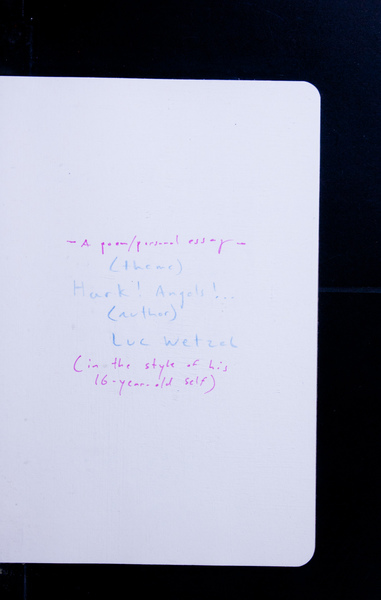 - A poem/personal essay -
(theme)
Hark! Angels!...
(author)
Luc Wetzel
(in the style of his
16-year-old self)